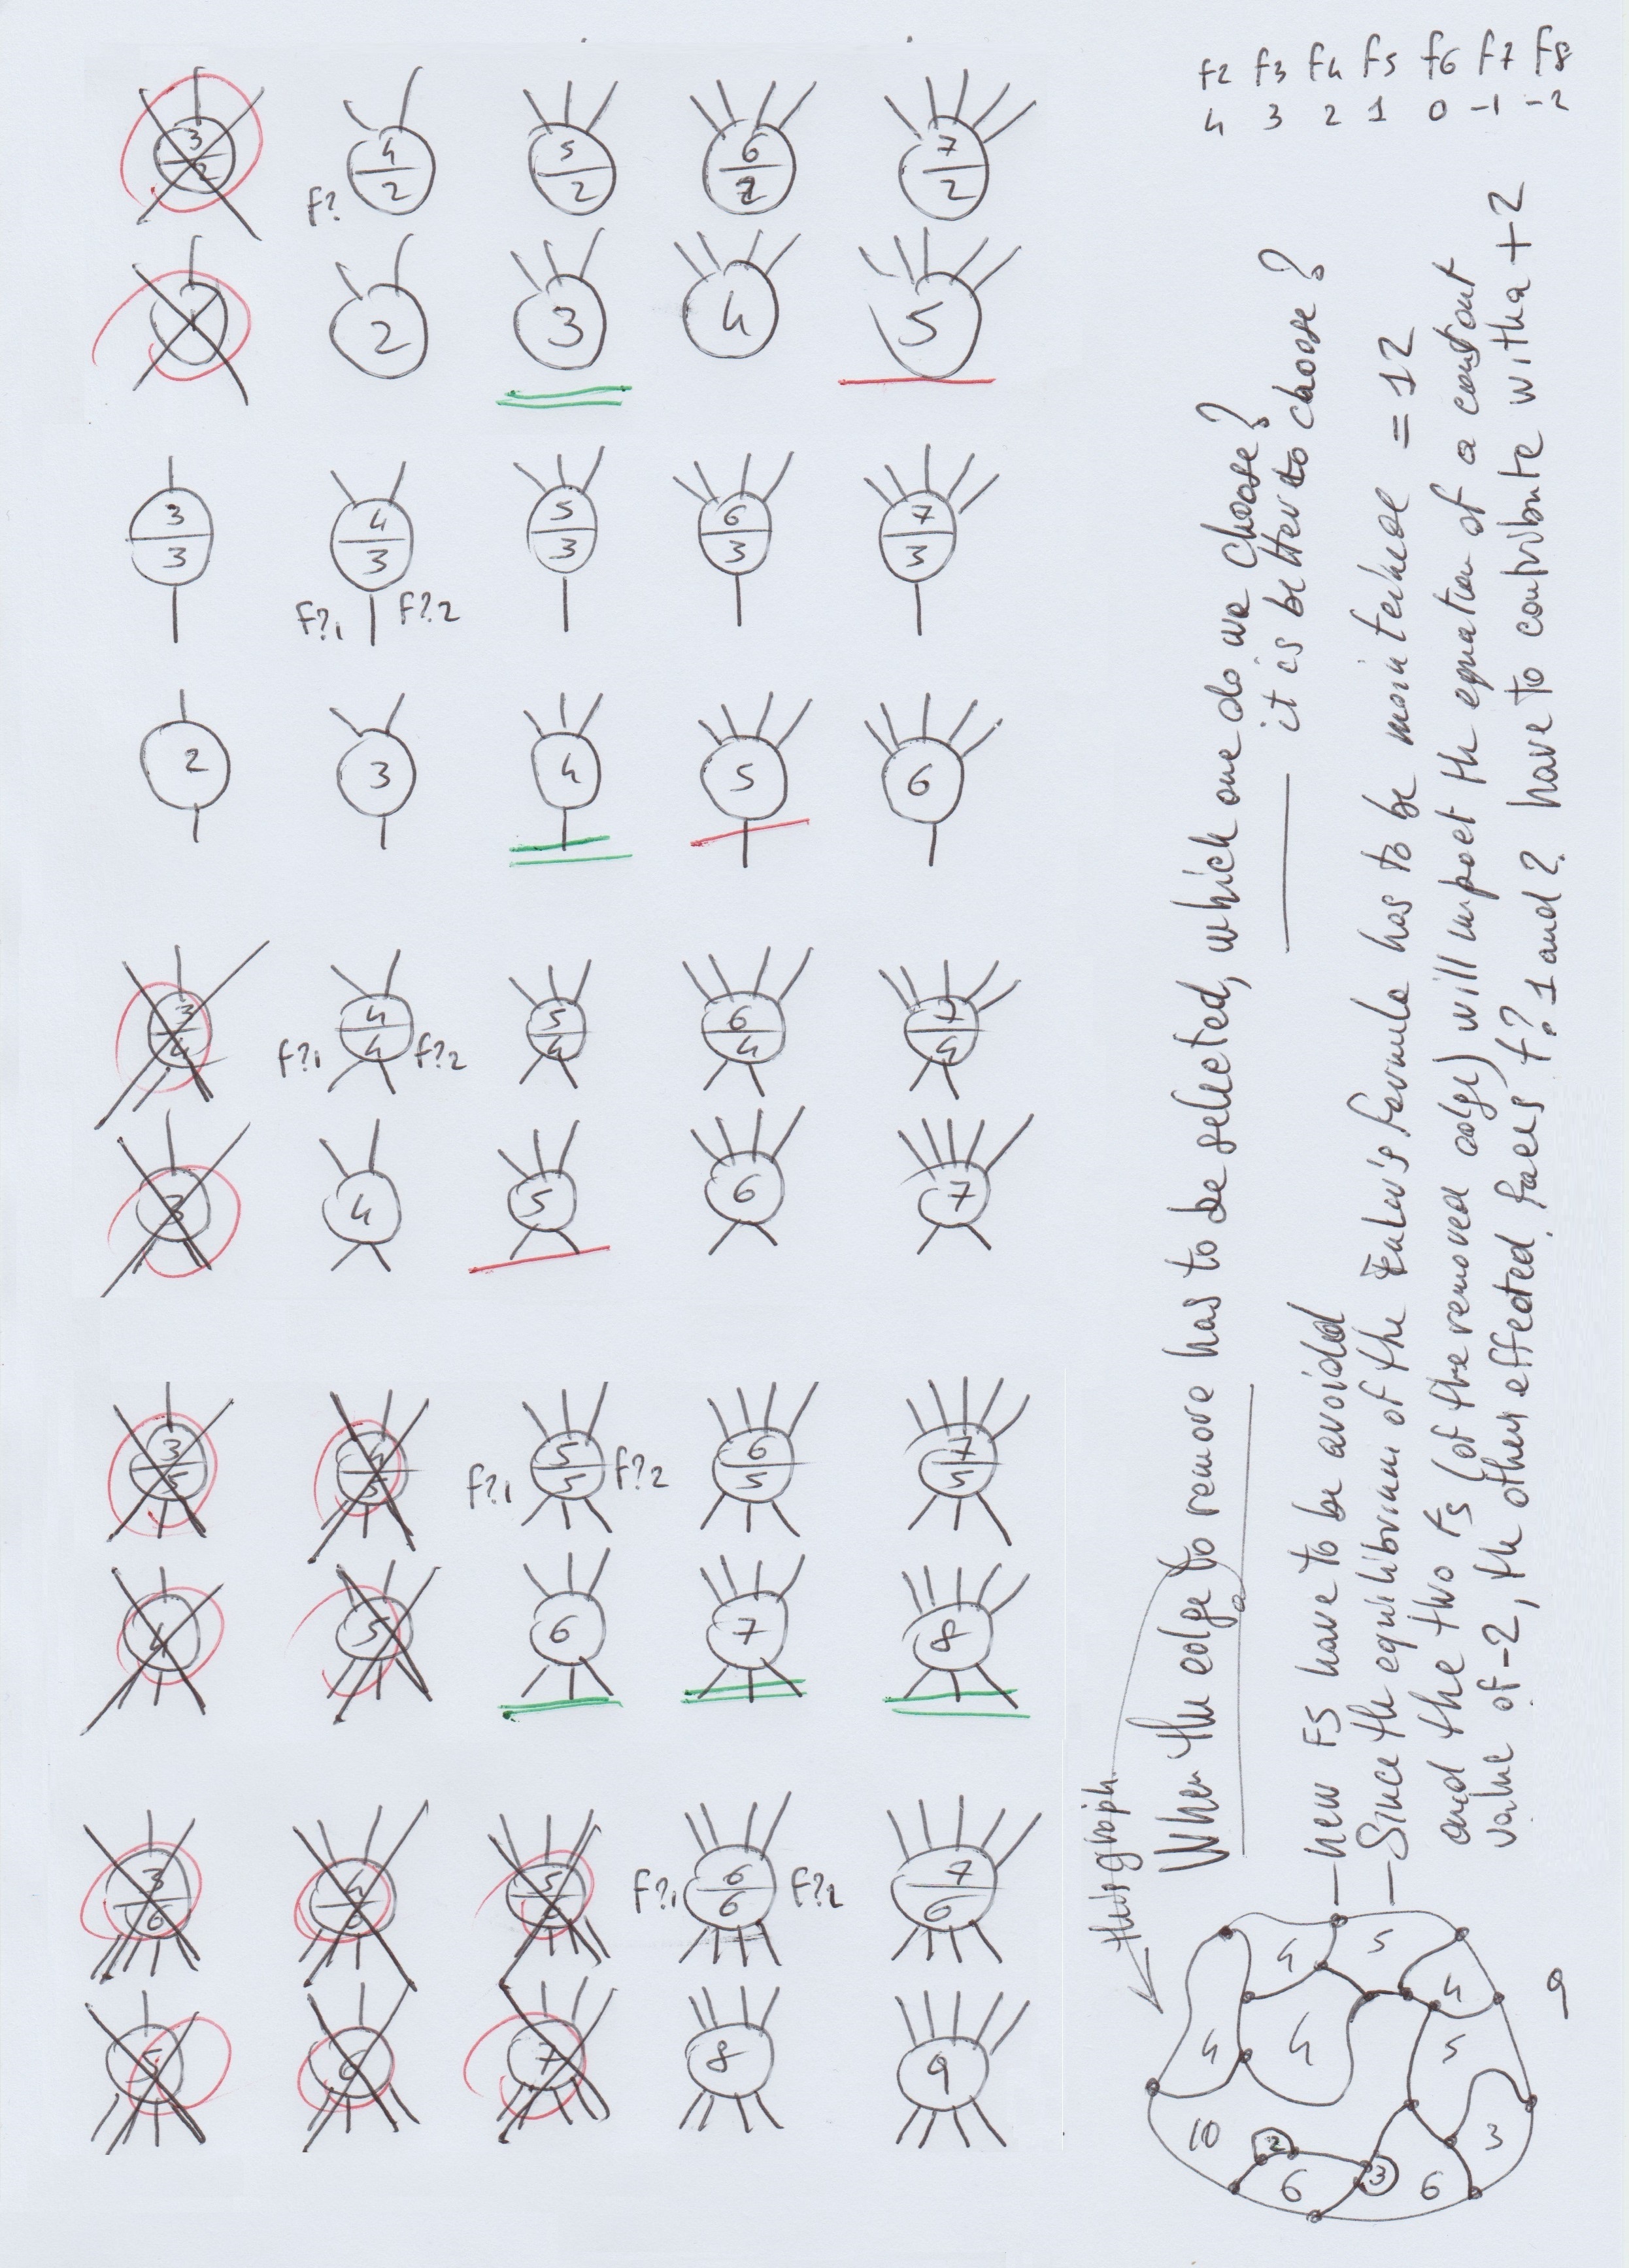 F2 F3 F4 F5 F6 F7 F8
4 3 2 1 0 -1 -2
3 4 5 6 7
2 2 2 2 2
F?
1 2 3 4 5
3 4 5 6 7
3 3 3 3 3
F?1 F?2
2 3 4 5 6
3 4 5 6 7
4 4 4 4 4
F?1 F?2
3 4 5 6 7
3 4 5 6 7
5 5 5 5 5
F?1 F?2
4 5 6 7 8
3 4 5 6 7
6 6 6 6 6
F?1 F?2
5 6 7 8 9
this graph
When the edge to remove has to be selected, which one do we choose?
it is better to choose?
— new F5 have to be avoided
— Since the equilibrium of the Euler's formula has to be mainteined = 12
and the two Fs (of the removed edge) will impact the equation of a constant
value of -2, the other effected faces f?1 and 2 have to contribute with a +2
4 5
4 4 5
5
10 2 3
6 3 6
9